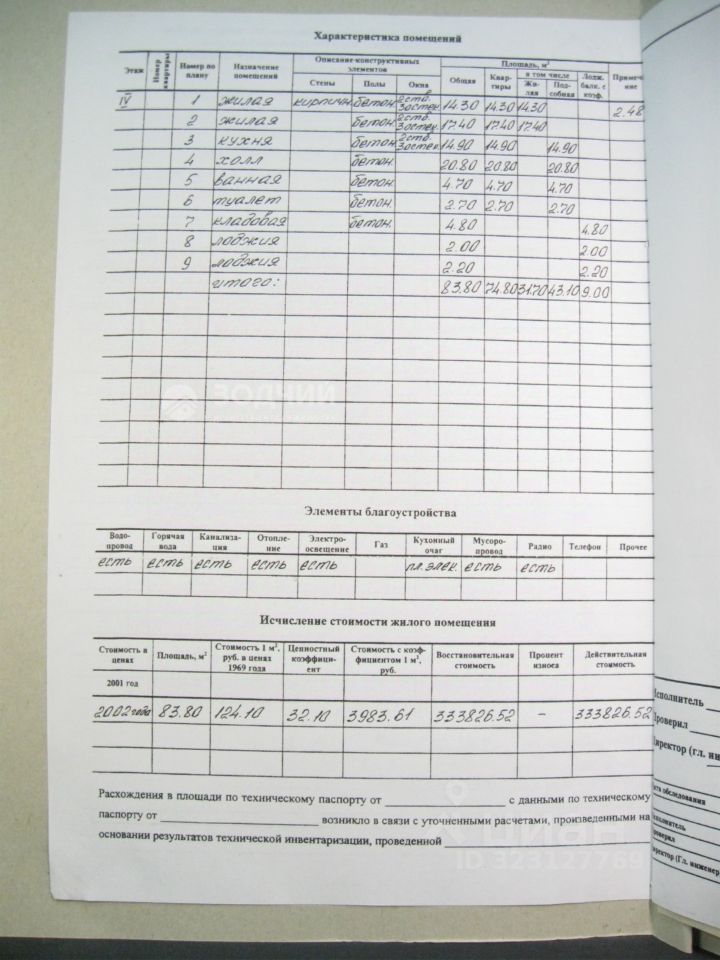 Характеристика помещений
Этаж | Номер квартиры | Номер по плану | Назначение помещений | Описание конструктивных элементов | Площадь, м² | Примечание
Стены | Полы | Окна | Общая | Квартиры | в том числе | Лодж. балк. с коэф.
Жилая | Подсобная
IV | 1 | жилая | кирпичн. | бетон. | 2 ств. 3 остек. | 14.30 | 14.30 | 14.30 | 2.48
2 | жилая | бетон. | 2 ств. 3 остек. | 17.40 | 17.40 | 17.40
3 | кухня | бетон. | 2 ств. 3 остек. | 14.90 | 14.90 | 14.90
4 | холл | бетон. | 20.80 | 20.80 | 20.80
5 | ванная | бетон. | 4.70 | 4.70 | 4.70
6 | туалет | бетон. | 2.70 | 2.70 | 2.70
7 | кладовая | бетон. | 4.80 | 4.80
8 | лоджия | 2.00 | 2.00
9 | лоджия | 2.20 | 2.20
итого: | 83.80 | 74.80 | 31.70 | 43.10 | 9.00
ЗОДЧИЙ
Элементы благоустройства
Водопровод | Горячая вода | Канализация | Отопление | Электроосвещение | Газ | Кухонный очаг | Мусоропровод | Радио | Телефон | Прочее
есть | есть | есть | есть | есть | пл. элек. | есть | есть
Исчисление стоимости жилого помещения
Стоимость в ценах | Площадь, м² | Стоимость 1 м², руб. в ценах 1969 года | Ценностный коэффициент | Стоимость с коэффициентом 1 м², руб. | Восстановительная стоимость | Процент износа | Действительная стоимость
2001 год
2002 года | 83.80 | 124.10 | 32.10 | 3983.61 | 333826.52 | – | 333826.52
Расхождения в площади по техническому паспорту от ____ с данными по техническому
паспорту от ____ возникло в связи с уточненными расчетами, произведенными на
основании результатов технической инвентаризации, проведенной ____
циан
ID 323127769
Исполнитель
Проверил
Директор (гл. инже
обследования
Исполнитель
Проверил
Директор (Гл. инженер